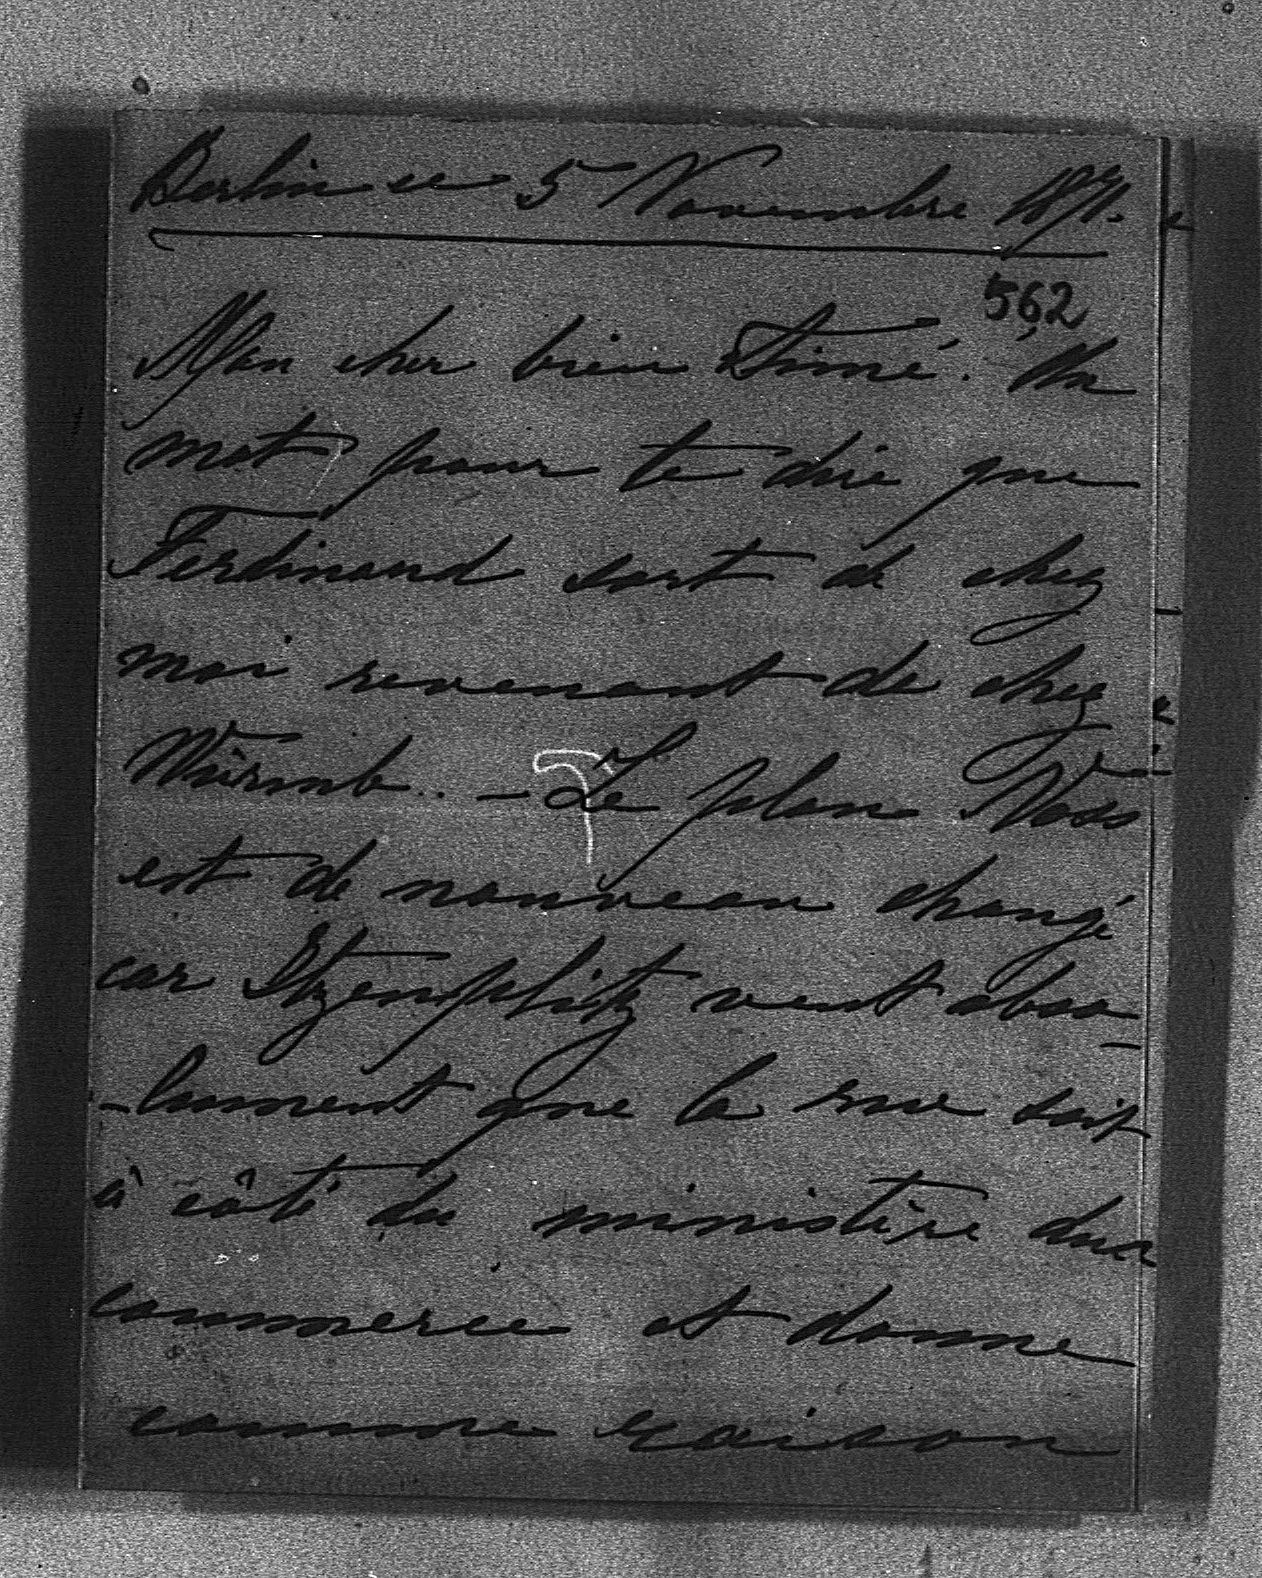 Berlin ce 5 Novembre 1871.
562
Mon cher bien Aimé. Un
mot pour te dire que
Ferdinand sort de chez
moi revenant de chez
Würmb. - Le plan Voss
est de nouveau changé
car Itzenplitz veut abso-
-lument que la rue soit
à côté du ministère du
commerce et donne
comme raison